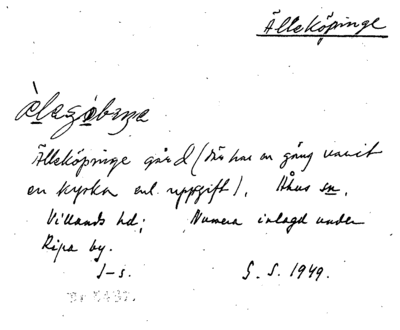 Älleköpinge
Älleköpinge gård (där har en gång varit
en kyrka enl. uppgift). Åhus sn.
Villands hd; Numera inlagd under
Ripa by.
I-s. G. S. 1949.